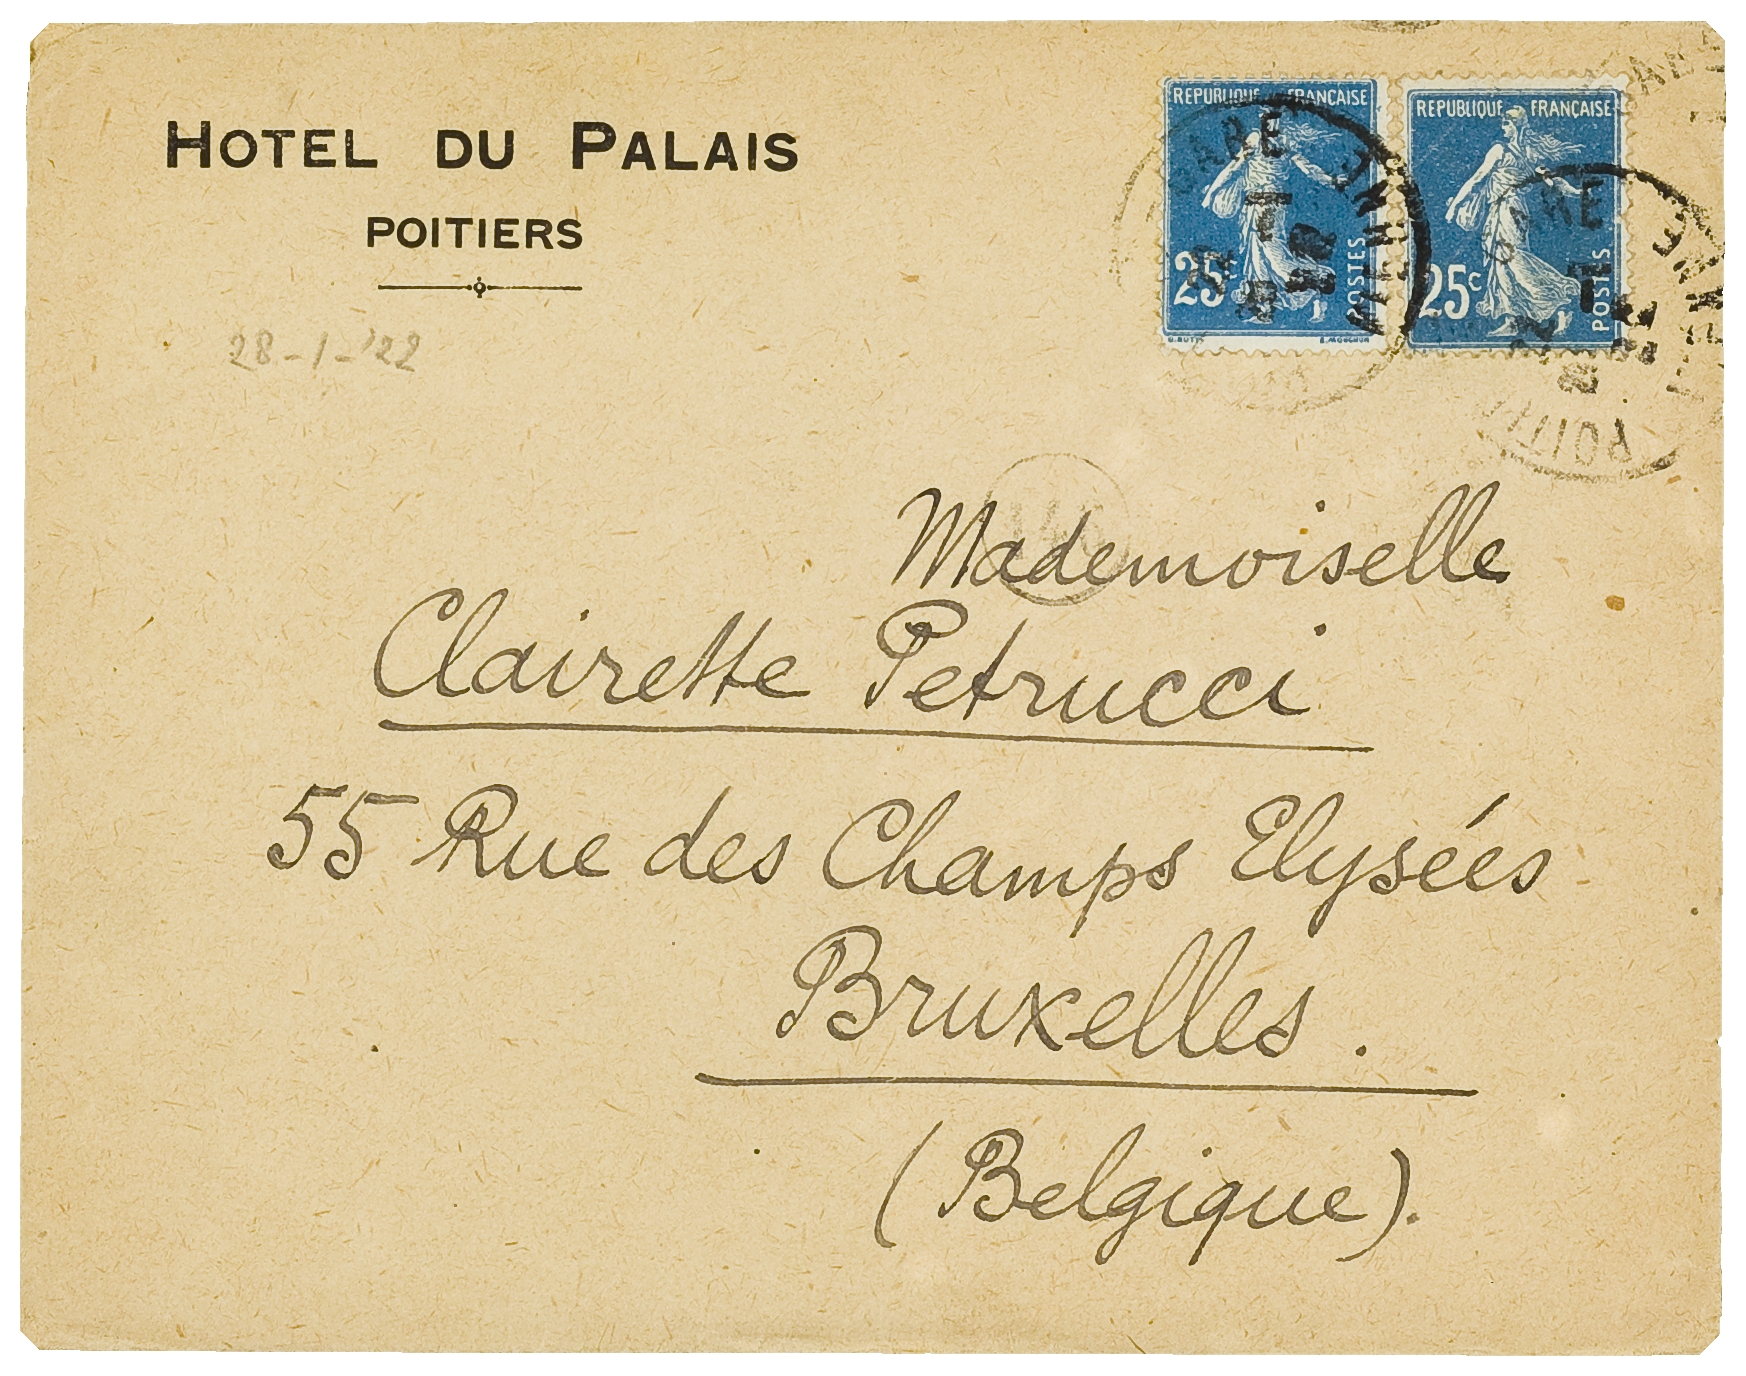 HOTEL DU PALAIS
POITIERS
28-1-'22
REPUBLIQUE FRANÇAISE
25c
POSTES
REPUBLIQUE FRANÇAISE
25c
POSTES
GARE
VIENNE
GARE
VIENNE
Mademoiselle
Clairette Petrucci
55 Rue des Champs Elysées
Bruxelles.
(Belgique).